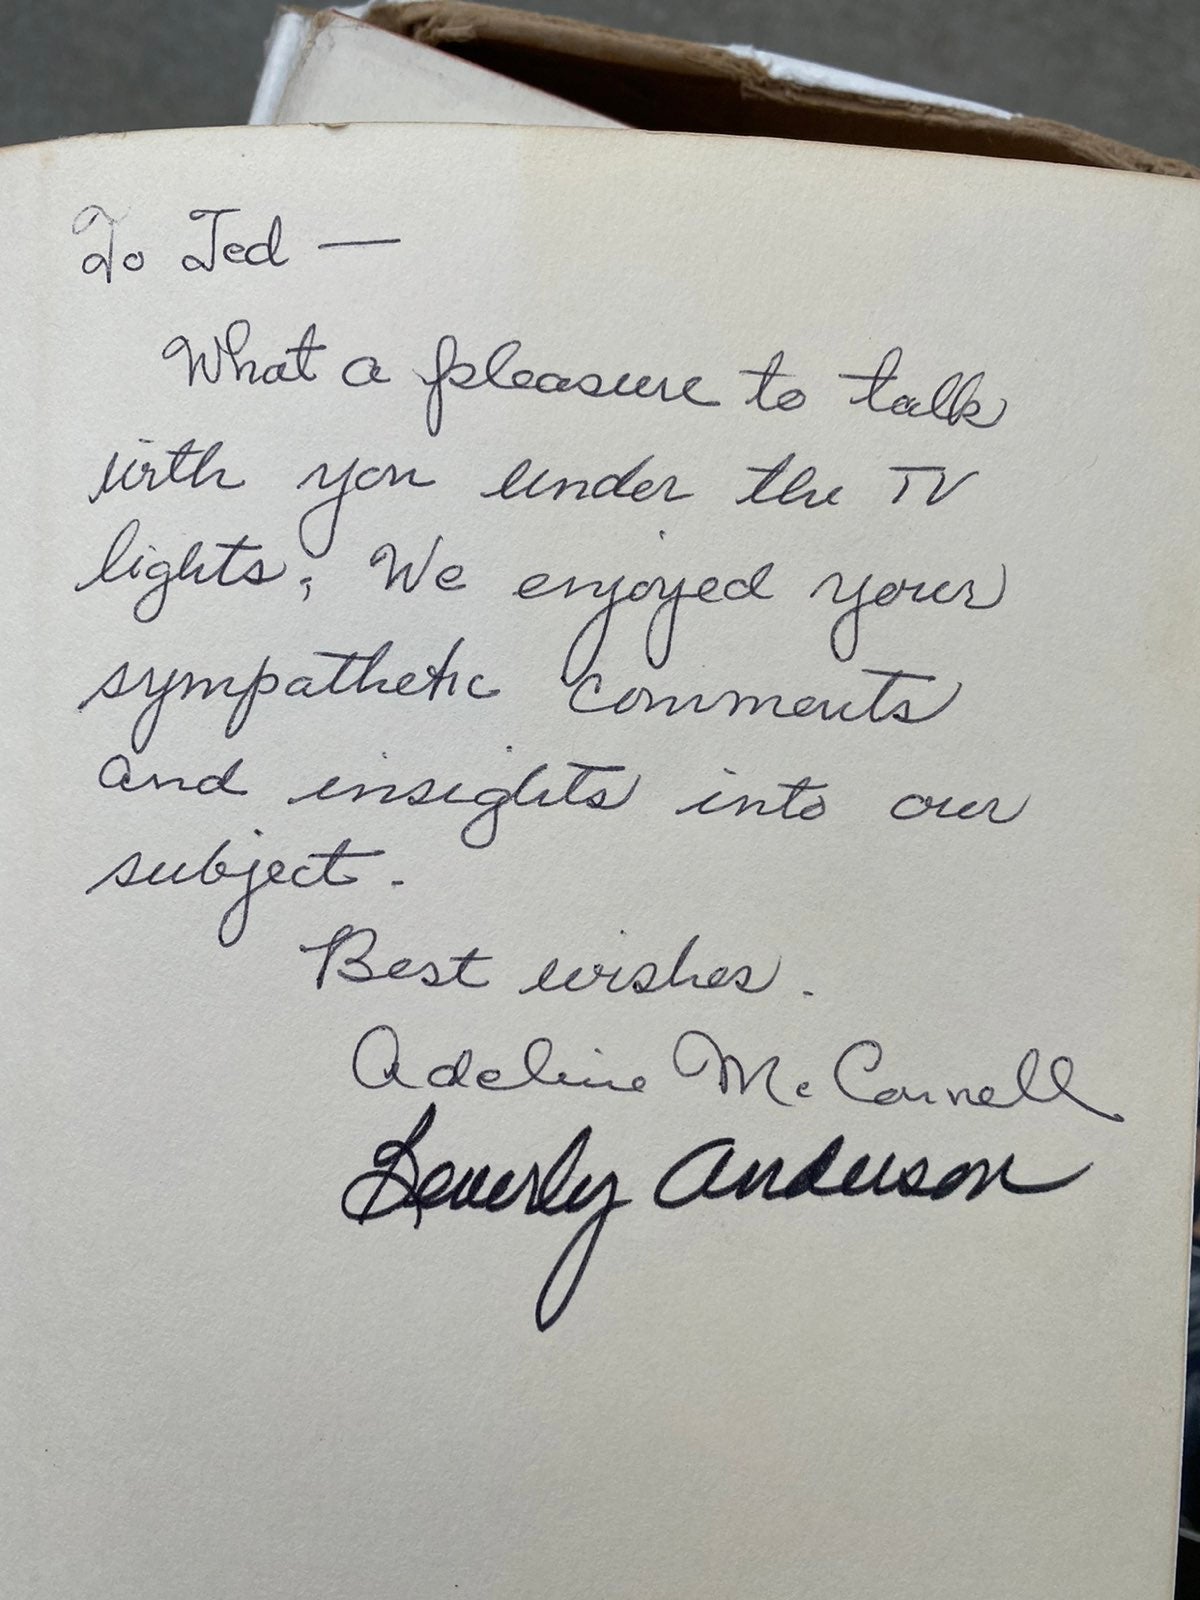 To Ted —
What a pleasure to talk
with you under the TV
lights, We enjoyed your
sympathetic comments
and insights into our
subject.
Best wishes.
Adeline McConnell
Beverly Anderson